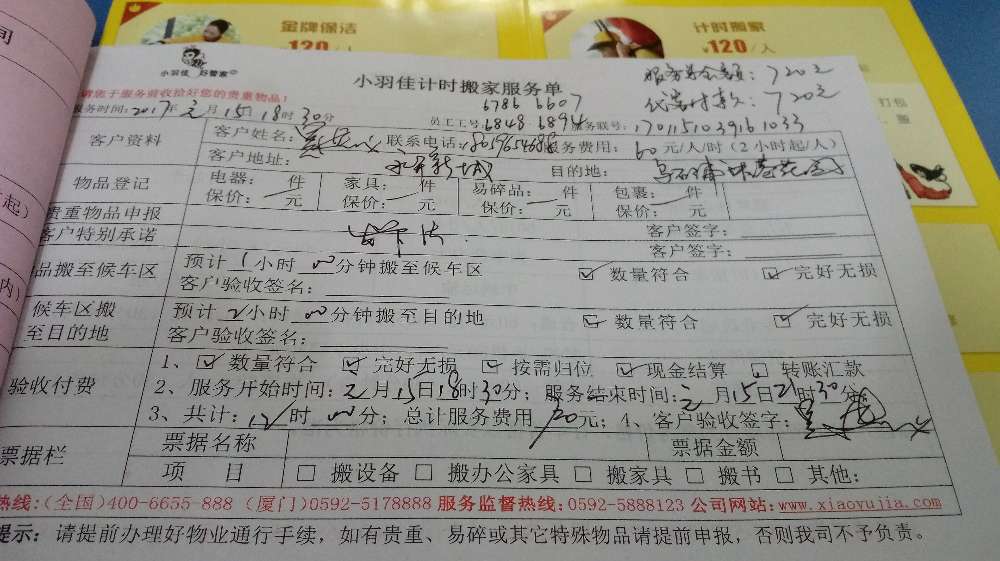 金牌保洁
计时搬家
¥120/人
¥120/人
小羽佳 好管家
小羽佳计时搬家服务单
服务总金额: 720元
代需付款: 720元
请您于服务前收拾好您的贵重物品!
6786 6607
服务时间: 2017年 元月 15日 18时 30分
员工工号: 6848 6894
服务联号: 170115103916 1033
客户资料
客户姓名:
联系电话:
服务费用: 60元/人/时 (2小时起/人)
客户地址:
目的地:
物品登记
电器: 件
家具: 件
易碎品: 件
包裹: 件
保价: 元
保价: 元
保价: 元
保价: 元
贵重物品申报
客户签字:
客户特别承诺
客户签字:
品搬至候车区
预计 1小时 00分钟搬至候车区
数量符合
完好无损
客户验收签名:
候车区搬
至目的地
预计 2小时 00分钟搬至目的地
数量符合
完好无损
客户验收签名:
验收付费
1、 数量符合 完好无损 按需归位 现金结算 转账汇款
2、服务开始时间: 元月 15日 18时 30分; 服务结束时间: 元月 15日 21时 30分
3、共计: 12时 00分; 总计服务费用 720元; 4、客户验收签字:
票据栏
票据名称
票据金额
项 目
□ 搬设备 □ 搬办公家具 □ 搬家具 □ 搬书 □ 其他:
热线:(全国)400-6655-888 (厦门)0592-5178888 服务监督热线:0592-5888123 公司网站:www.xiaoyujia.com
提示: 请提前办理好物业通行手续, 如有贵重、易碎或其它特殊物品请提前申报, 否则我司不予负责。